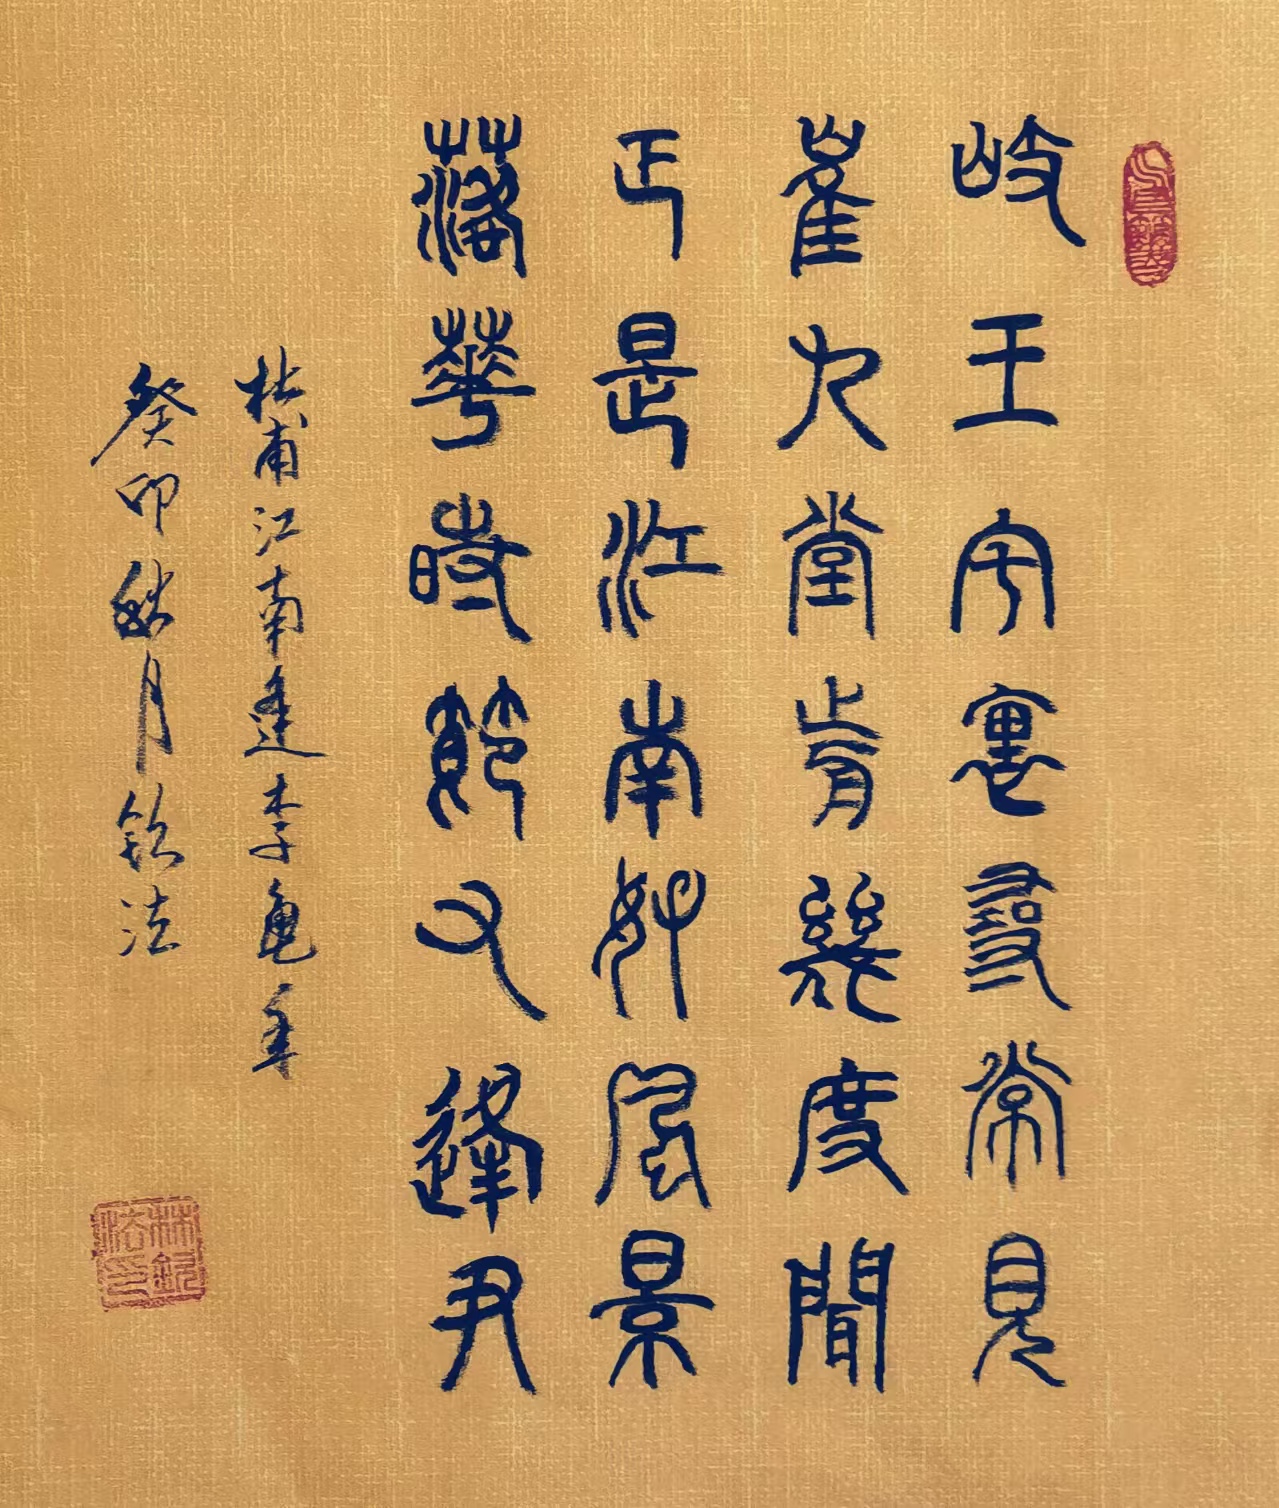 岐王宅裏尋常見
崔九堂前幾度聞
正是江南好風景
落華時節又逢尹
杜甫江南逢李龜年
癸卯秋月欽法
林欽法印